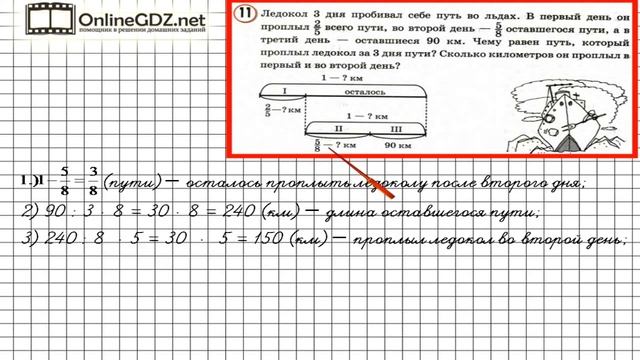 OnlineGDZ.net
помощник в решении домашних заданий
11 Ледокол 3 дня пробивал себе путь во льдах. В первый день он
проплыл 2/5 всего пути, во второй день — 5/8 оставшегося пути, а в
третий день — оставшиеся 90 км. Чему равен путь, который
проплыл ледокол за 3 дня пути? Сколько километров он проплыл в
первый и во второй день?
1 — ? км
I осталось
2/5 — ? км
1 — ? км
II III
5/8 — ? км 90 км
1.) 1 − 5/8 = 3/8 (пути) — осталось проплыть ледоколу после второго дня;
2) 90 : 3 8 = 30 · 8 = 240 (км) — длина оставшегося пути;
3) 240 : 8 5 = 30 · 5 = 150 (км) — проплыл ледокол во второй день;